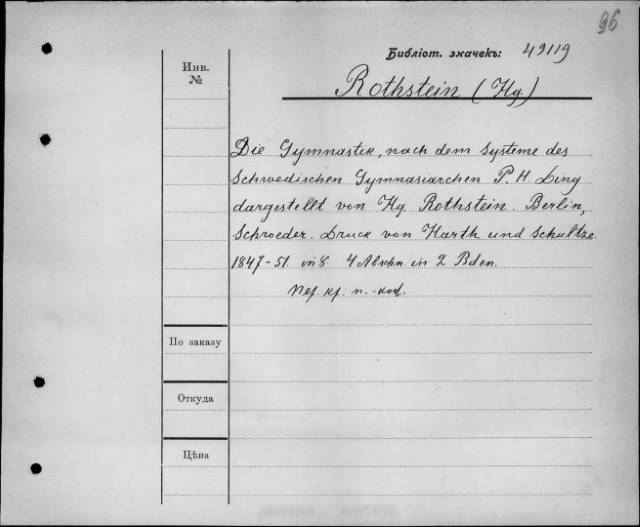 96
Библіот. значекъ: 49119
Инв.
№
Rothstein (Hg)
Die Gymnastik, nach dem Systeme des
Schwedischen Gymnasiarchen P. H Ling
dargestellt von Hg. Rothstein. Berlin,
Schroeder. Druck von Harth und Schultze.
1847-51. in 8. 4 Abschn in 2 Bden.
По заказу
Откуда
Цѣна